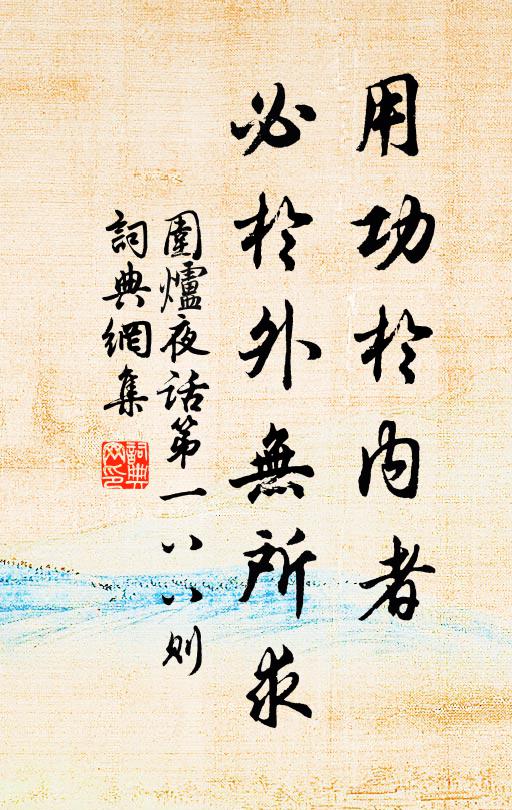 用功於內者
必於外無所求
圍爐夜话第一八八则
詞典網集
詞典
网印